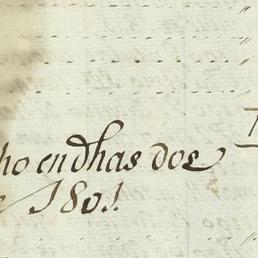 ho en dhas dos
1801